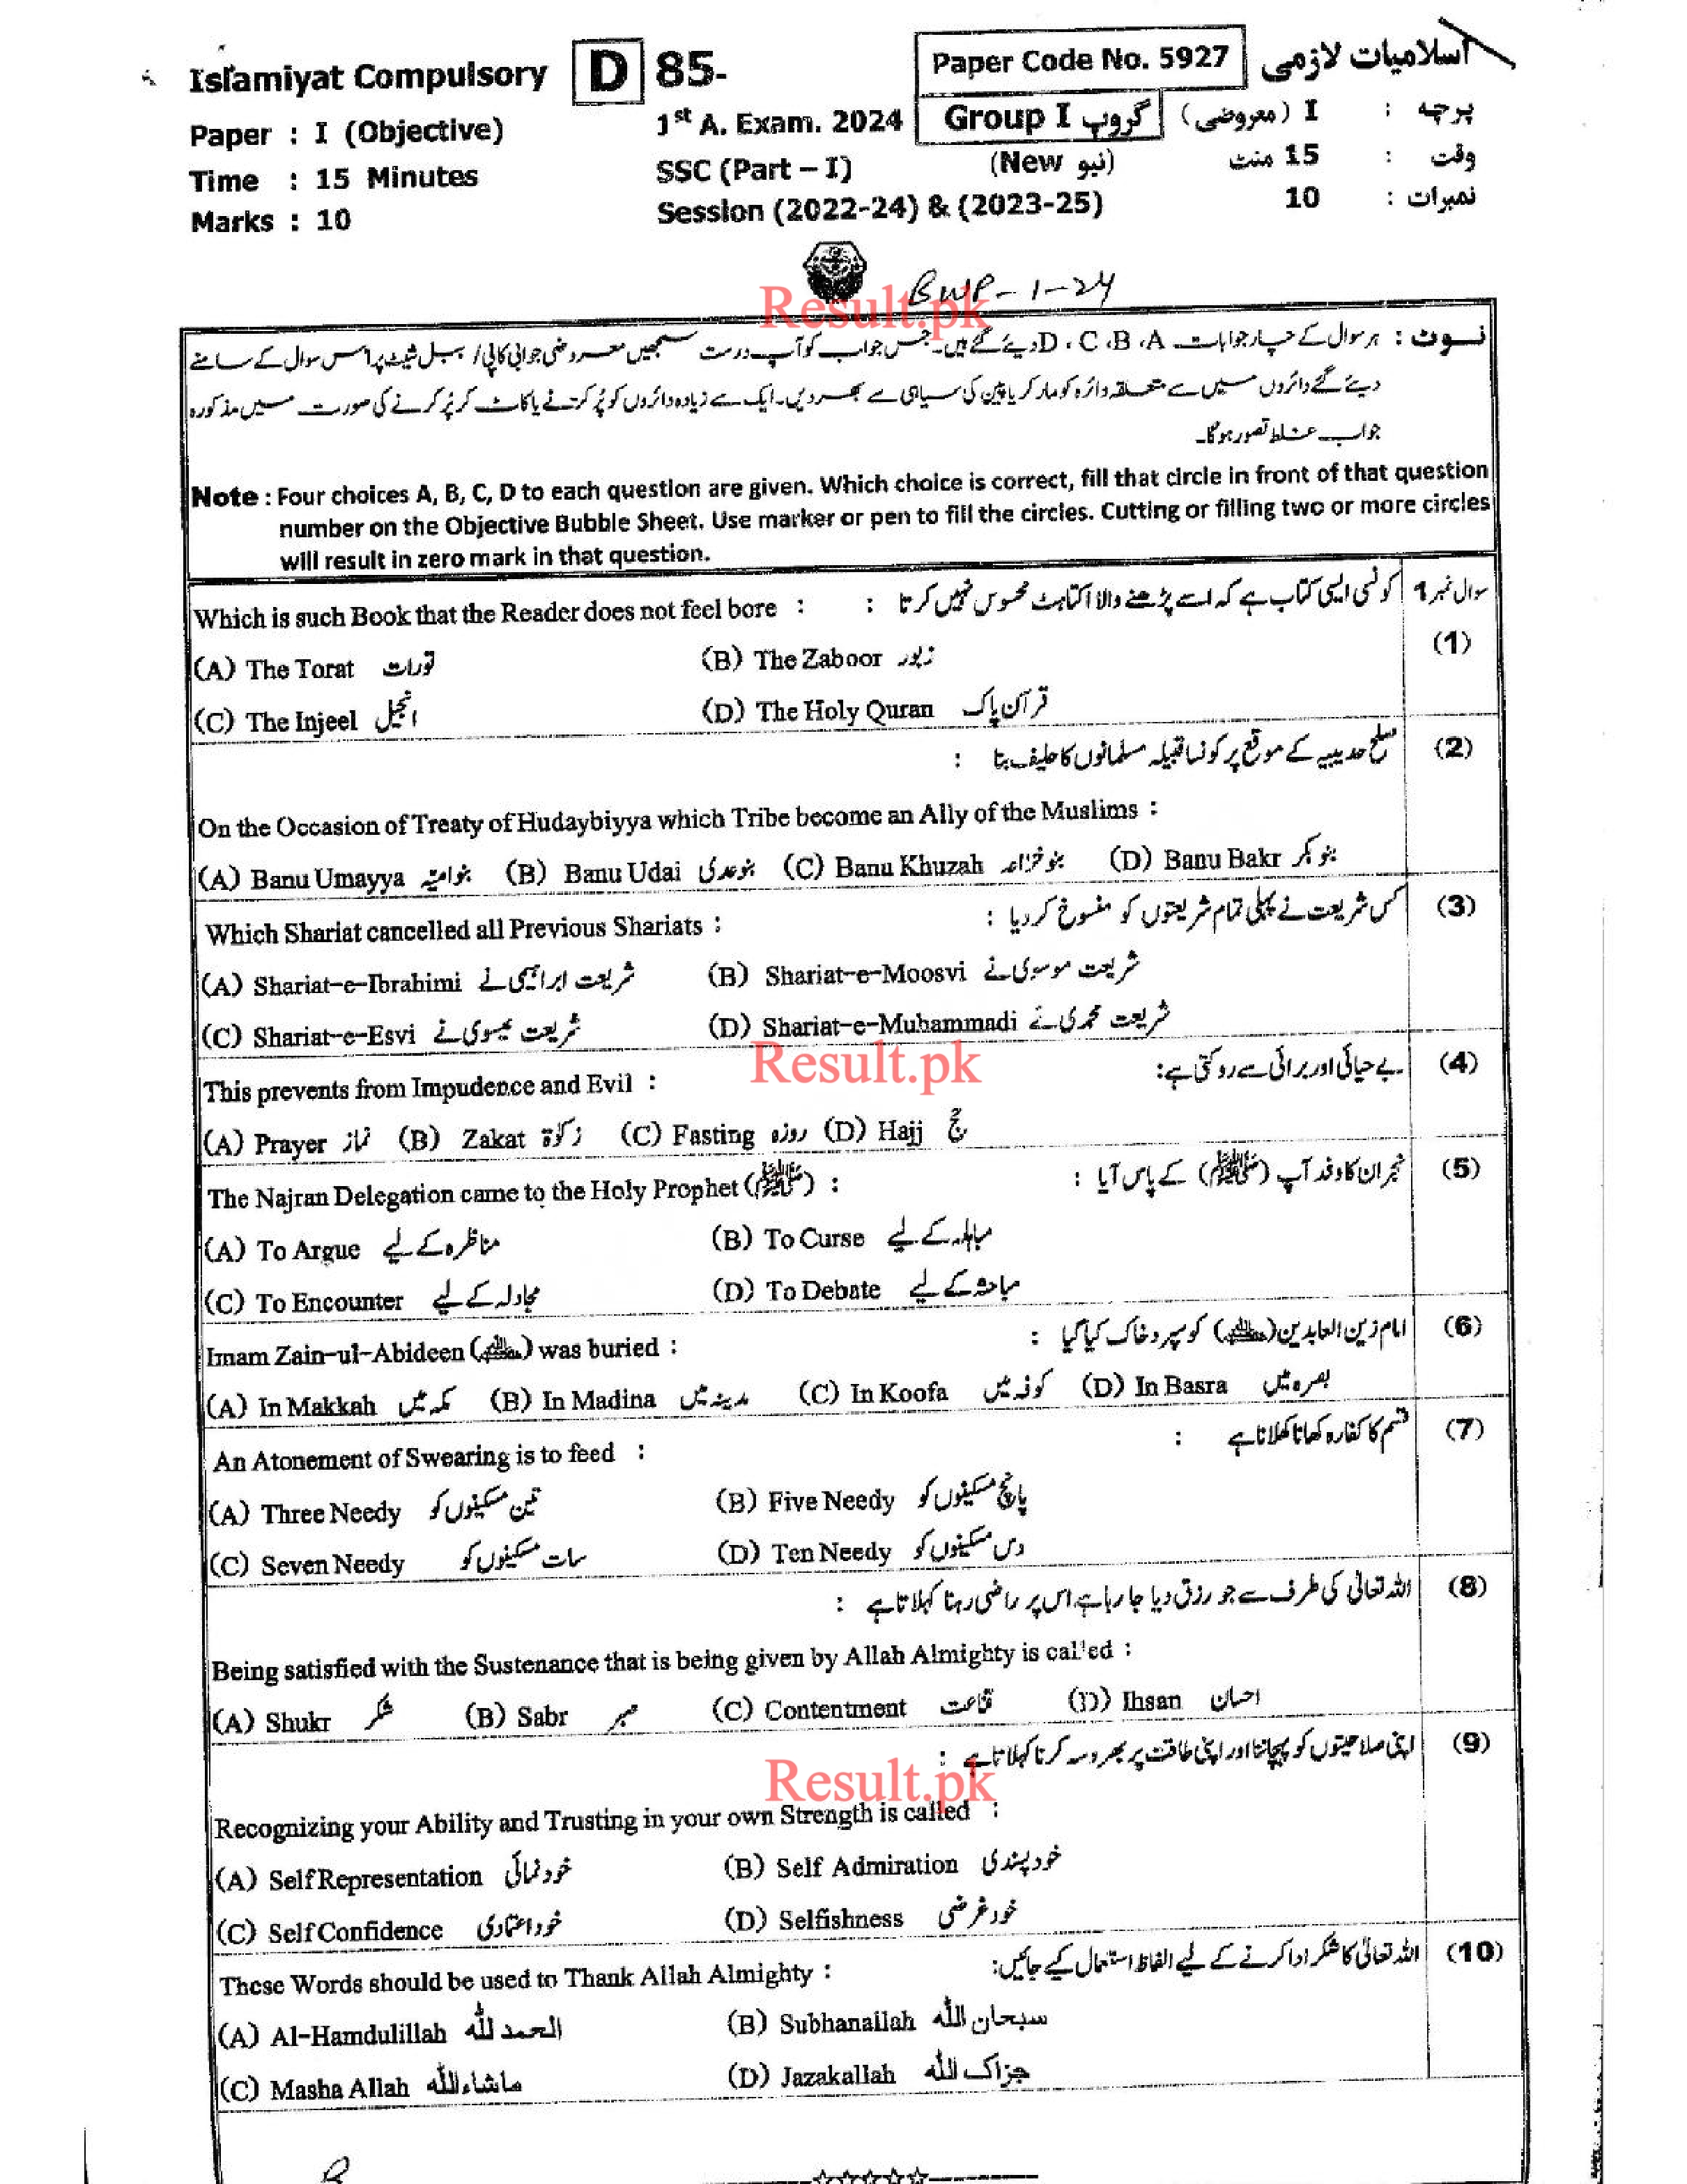 Islamiyat Compulsory D 85- Paper Code No. 5927 اسلامیات لازمی
Paper : I (Objective) 1st A. Exam. 2024 Group I گروپ I (معروضی) پرچہ :
Time : 15 Minutes SSC (Part – I) (New نیو) 15 منٹ وقت :
Marks : 10 Session (2022-24) & (2023-25) 10 نمبرات :
BWP-1-24
Result.pk
نوٹ : ہر سوال کے چار جوابات D ، C ،B ،A دیئے گئے ہیں۔ جس جواب کو آپ درست سمجھیں معروضی جوابی کاپی / ببل شیٹ پر اس سوال کے سامنے
دیئے گئے دائروں میں سے متعلقہ دائرہ کو مارکر یا پین کی سیاہی سے بھر دیں۔ ایک سے زیادہ دائروں کو پُر کرنے یا کاٹ کر پُر کرنے کی صورت میں مذکورہ
جواب غلط تصور ہو گا۔
Note : Four choices A, B, C, D to each question are given. Which choice is correct, fill that circle in front of that question
number on the Objective Bubble Sheet. Use marker or pen to fill the circles. Cutting or filling two or more circles
will result in zero mark in that question.
سوال نمبر 1 کونسی ایسی کتاب ہے کہ اسے پڑھنے والا اکتاہٹ محسوس نہیں کرتا :
Which is such Book that the Reader does not feel bore : (1)
(A) The Torat تورات (B) The Zaboor زبور
(C) The Injeel انجیل (D) The Holy Quran قرآن پاک
صلح حدیبیہ کے موقع پر کونسا قبیلہ مسلمانوں کا حلیف بنا : (2)
On the Occasion of Treaty of Hudaybiyya which Tribe become an Ally of the Muslims :
(A) Banu Umayya بنو امیّہ (B) Banu Udai بنو عدی (C) Banu Khuzah بنو خزاعہ (D) Banu Bakr بنو بکر
Which Shariat cancelled all Previous Shariats : کس شریعت نے پہلی تمام شریعتوں کو منسوخ کر دیا : (3)
(A) Shariat-e-Ibrahimi شریعت ابراہیمی نے (B) Shariat-e-Moosvi شریعت موسوی نے
(C) Shariat-e-Esvi شریعت عیسوی نے (D) Shariat-e-Muhammadi شریعت محمدی نے
Result.pk
This prevents from Impudence and Evil : بے حیائی اور برائی سے روکتی ہے: (4)
(A) Prayer نماز (B) Zakat زکوٰۃ (C) Fasting روزہ (D) Hajj حج
The Najran Delegation came to the Holy Prophet (ﷺ) : نجران کا وفد آپ (ﷺ) کے پاس آیا : (5)
(A) To Argue مناظرہ کے لیے (B) To Curse مباہلہ کے لیے
(C) To Encounter مجادلہ کے لیے (D) To Debate مباحثہ کے لیے
Imam Zain-ul-Abideen () was buried : امام زین العابدین () کو سپرد خاک کیا گیا : (6)
(A) In Makkah مکہ میں (B) In Madina مدینہ میں (C) In Koofa کوفہ میں (D) In Basra بصرہ میں
An Atonement of Swearing is to feed : قسم کا کفارہ کھانا کھلانا ہے : (7)
(A) Three Needy تین مسکینوں کو (B) Five Needy پانچ مسکینوں کو
(C) Seven Needy سات مسکینوں کو (D) Ten Needy دس مسکینوں کو
اللہ تعالیٰ کی طرف سے جو رزق دیا جا رہا ہے اس پر راضی رہنا کہلاتا ہے : (8)
Being satisfied with the Sustenance that is being given by Allah Almighty is called :
(A) Shukr شکر (B) Sabr صبر (C) Contentment قناعت (D) Ihsan احسان
اپنی صلاحیتوں کو پہچاننا اور اپنی طاقت پر بھروسہ کرنا کہلاتا ہے : (9)
Result.pk
Recognizing your Ability and Trusting in your own Strength is called :
(A) Self Representation خود نمائی (B) Self Admiration خود پسندی
(C) Self Confidence خود اعتمادی (D) Selfishness خود غرضی
اللہ تعالیٰ کا شکر ادا کرنے کے لیے الفاظ استعمال کیے جائیں: (10)
These Words should be used to Thank Allah Almighty :
(A) Al-Hamdulillah الحمد للہ (B) Subhanallah سبحان اللہ
(C) Masha Allah ماشاءاللہ (D) Jazakallah جزاک اللہ